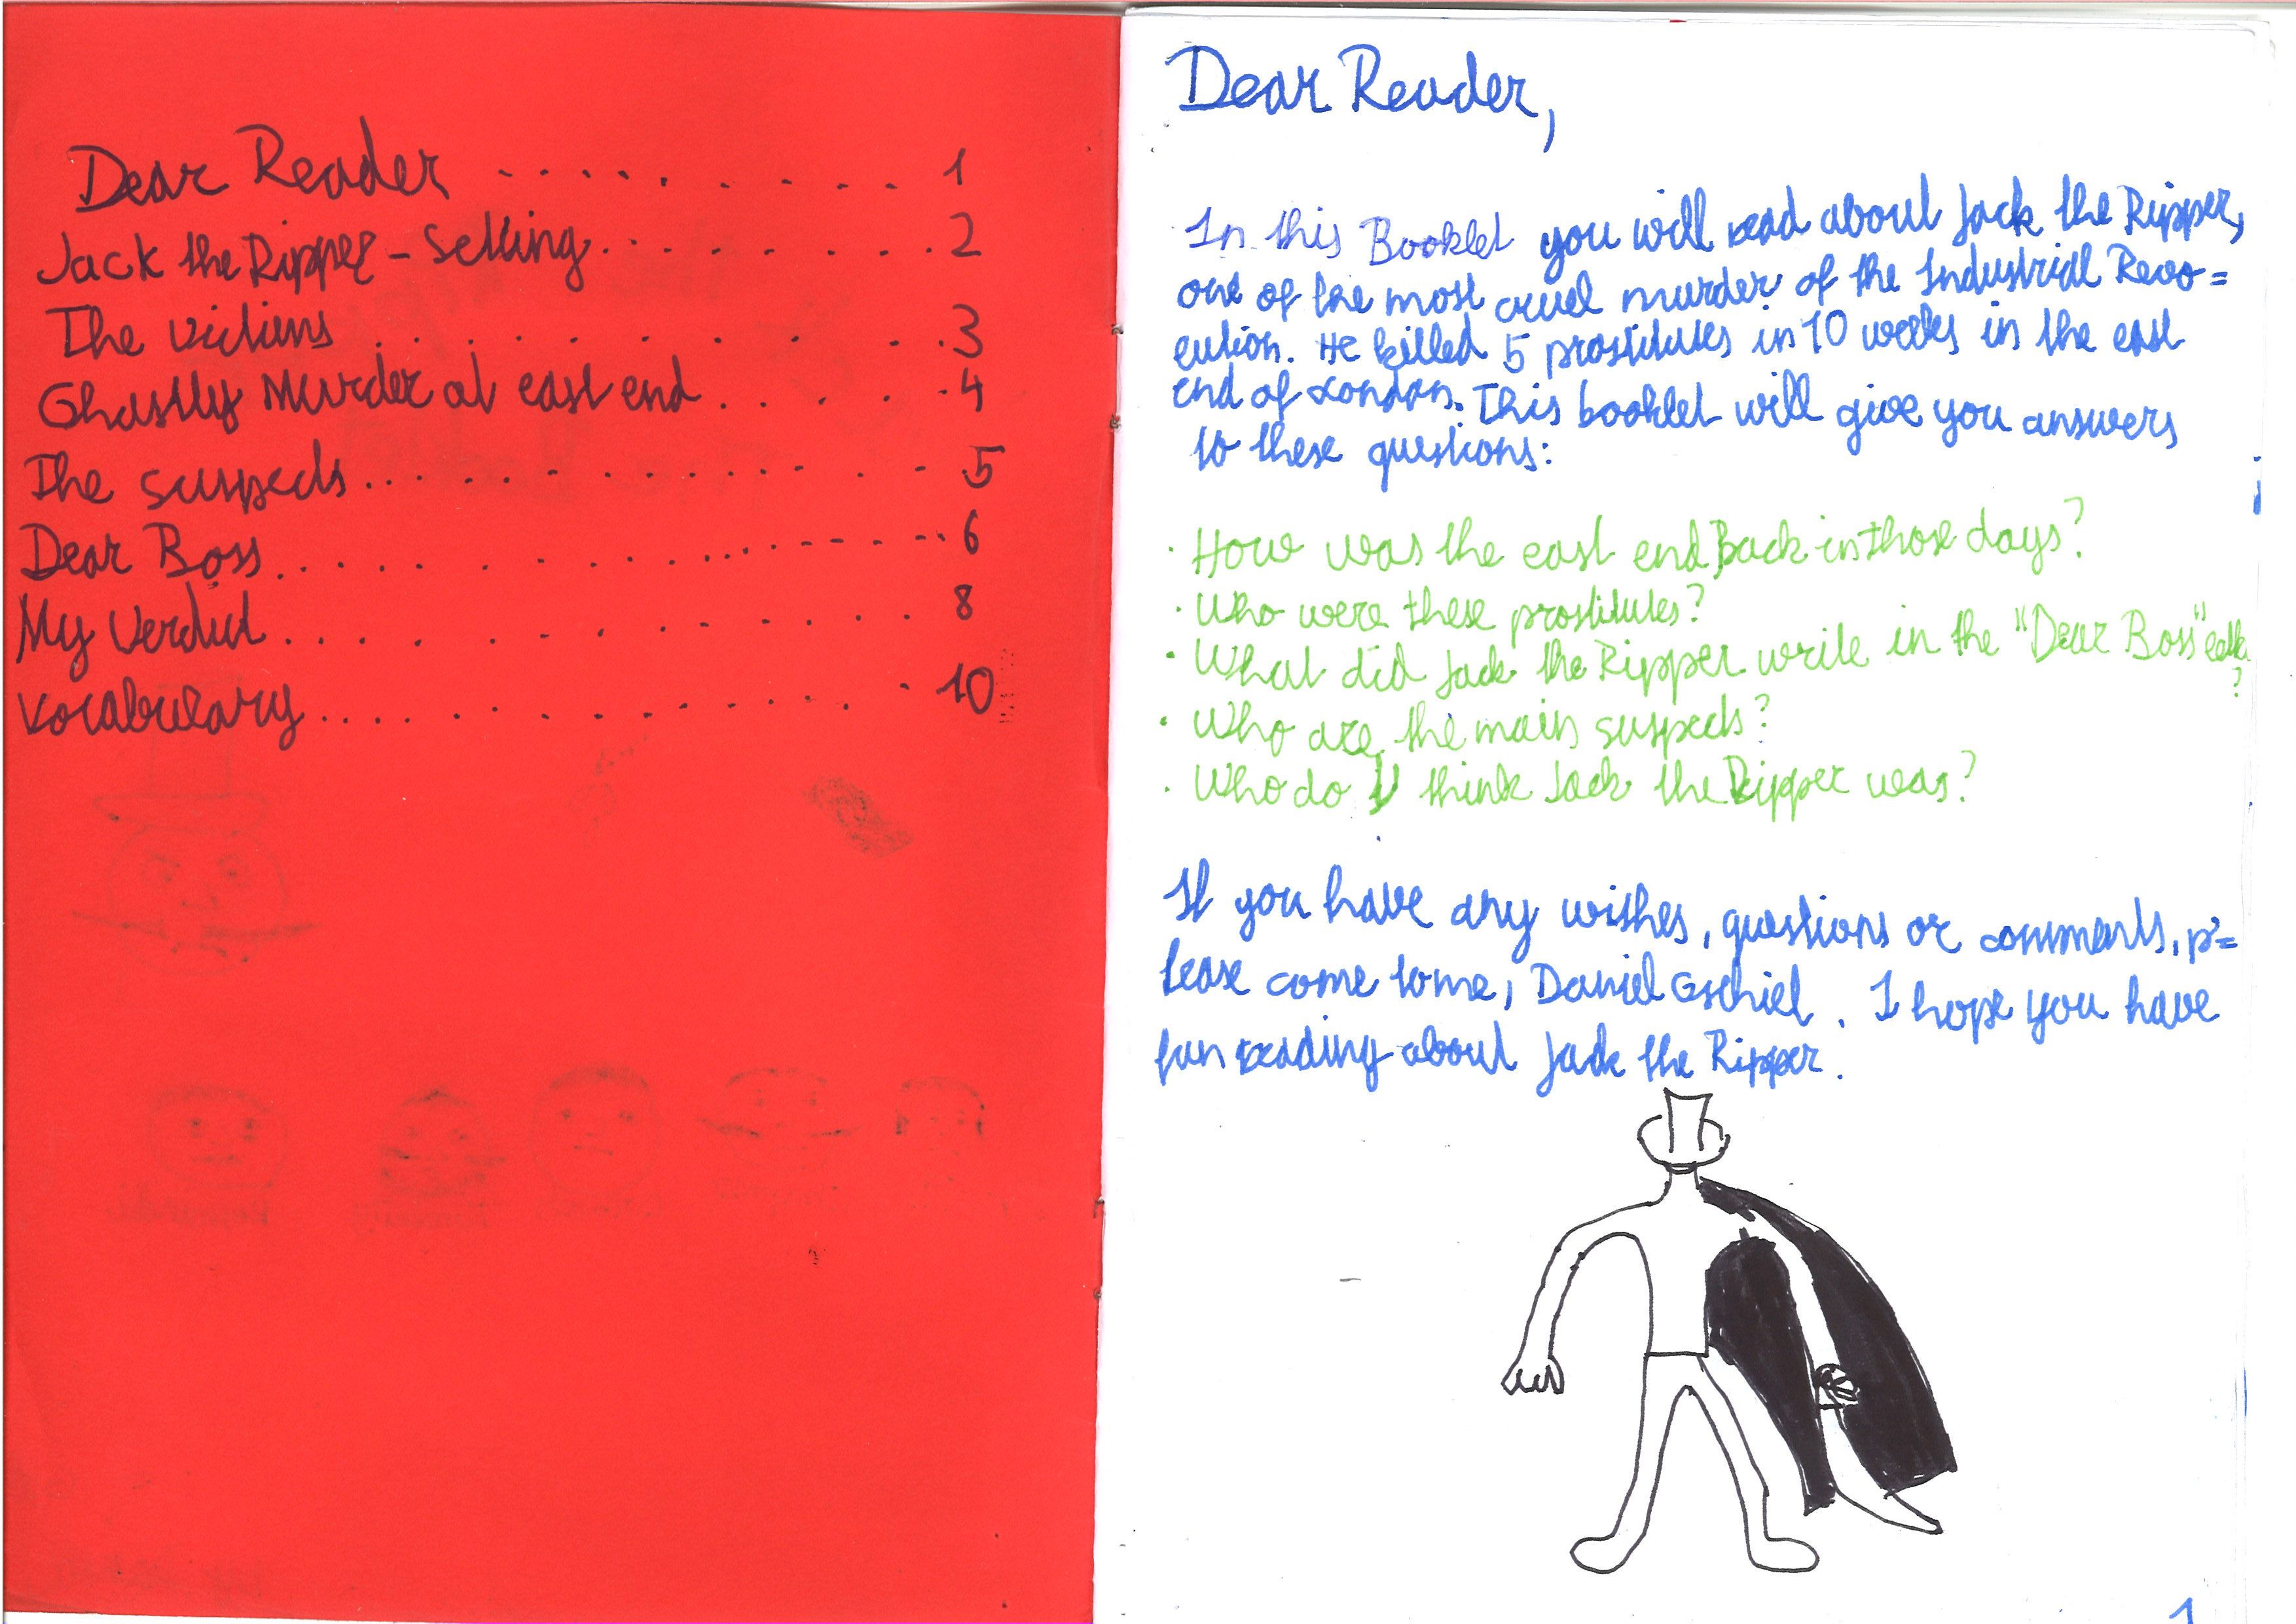 Dear Reader .......... 1
Jack the Ripper - Setting ......... 2
The victims .......... 3
Ghastly Murder at east end ...... 4
The suspects ............. 5
Dear Boss .............. 6
My Verdict .......... 8
Vocabulary ............ 10
Dear Reader,
In this Booklet you will read about Jack the Ripper,
one of the most cruel murder of the Industrial Revo=
lution. He killed 5 prostitutes in 10 weeks in the east
end of London. This booklet will give you answers
to these questions:
· How was the east end Back in those days?
· Who were these prostitutes?
· What did Jack the Ripper write in the "Dear Boss"
?
· Who are the main suspects?
· Who do I think Jack the Ripper was?
If you have any wishes, questions or comments, p=
lease come to me, Daniel Gschiel. I hope you have
fun reading about Jack the Ripper.
1